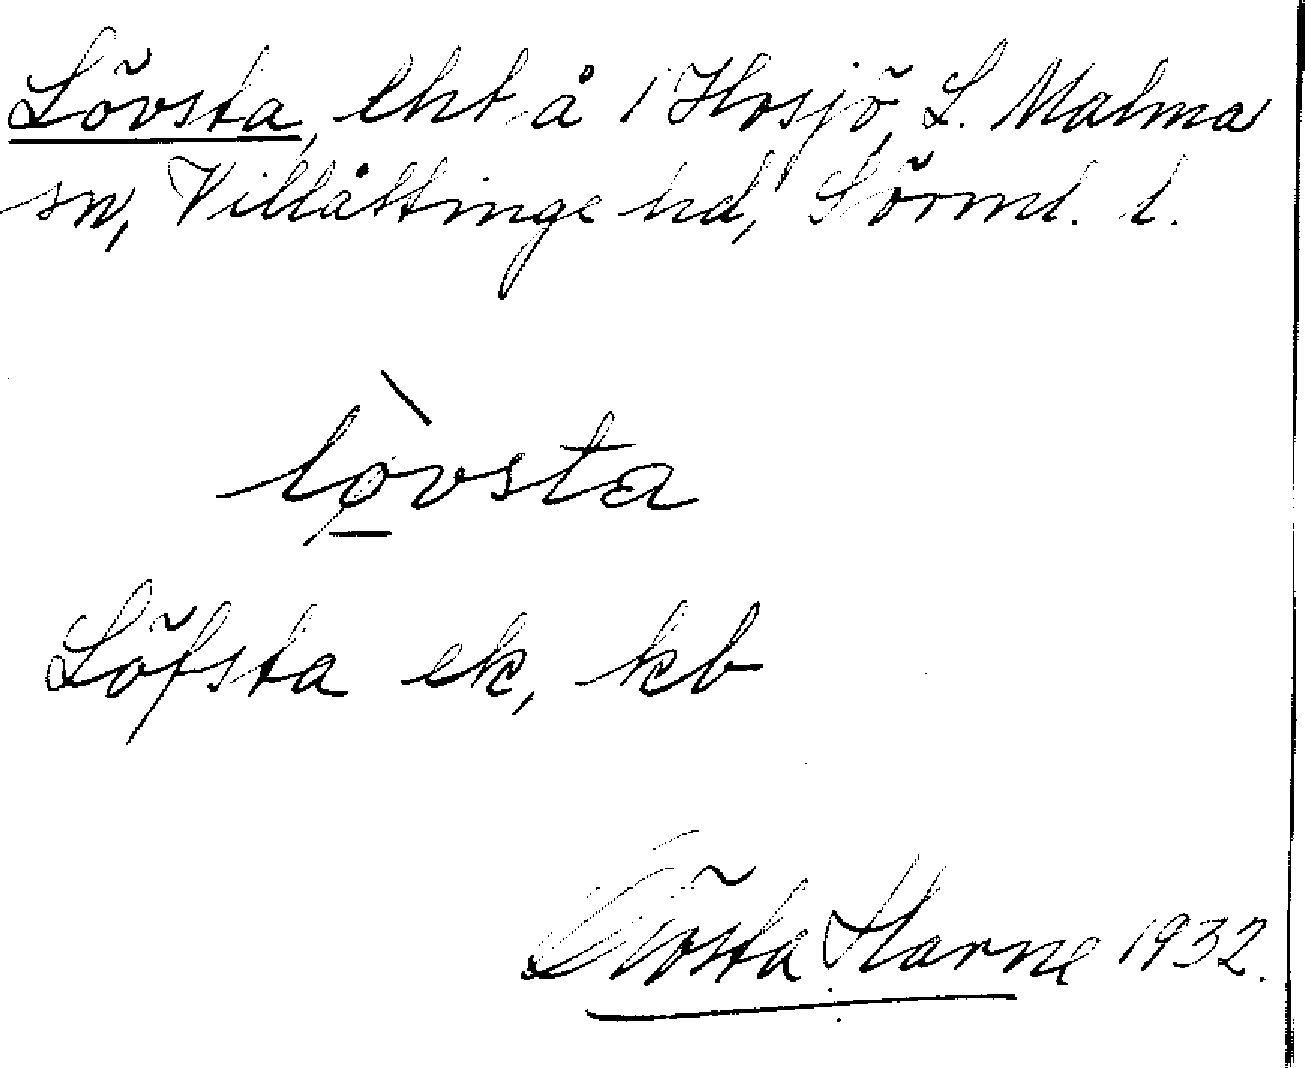 Lövsta, lht å 1 Hosjö, L. Malma
sn, Villåttinge hd, Sörml. l.
lò̱vsta
Löfsta ek, kb
Gösta Harne 1932.